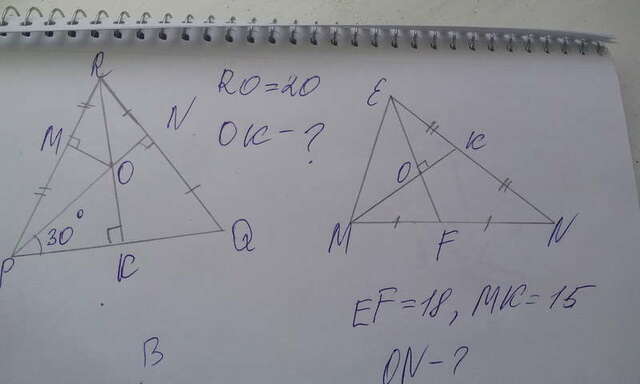 R
M
N
O
30°
P
K
Q
RO=20
OK-?
E
K
O
M
F
N
EF=18, MK=15
ON-?
B